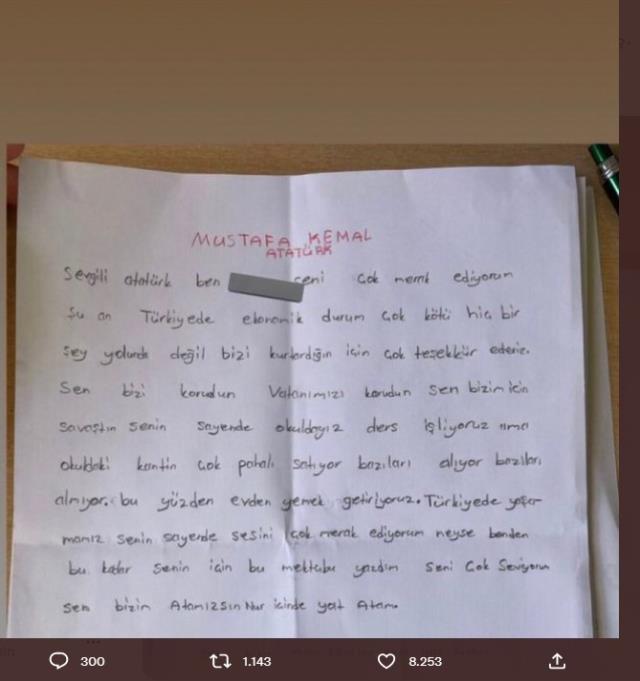 MUSTAFA KEMAL
ATATÜRK
Sevgili atatürk ben seni çok merak ediyorum
Şu an Türkiyede ekonomik durum çok kötü hiç bir
şey yolunda değil bizi kurtardığın için çok teşekkür ederiz.
Sen bizi korudun Vatanımızı korudun sen bizim için
savaştın senin sayende okuldayız ders işliyoruz ama
okuldaki kantin çok pahalı satıyor bazıları alıyor bazıları
almıyor. bu yüzden evden yemek getiriyoruz. Türkiyede yaşa-
mamız senin sayende sesini çok merak ediyorum neyse benden
bu kadar senin için bu mektubu yazdım seni çok seviyorum
sen bizim Atamızsın Nur içinde yat Atam.
300 1.143 8.253